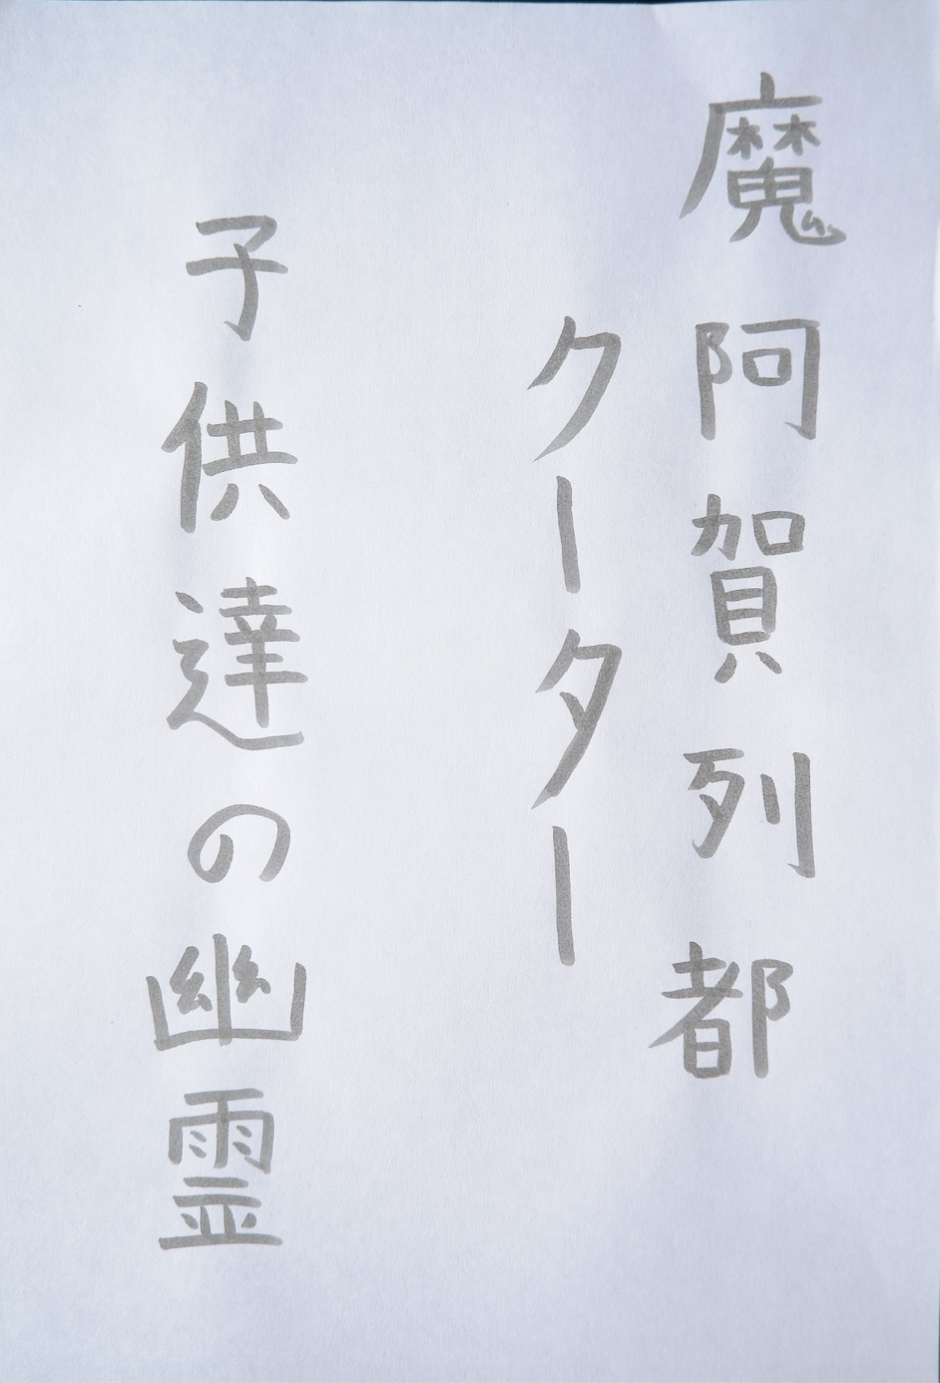 魔阿賀列都
クーター
子供達の幽霊